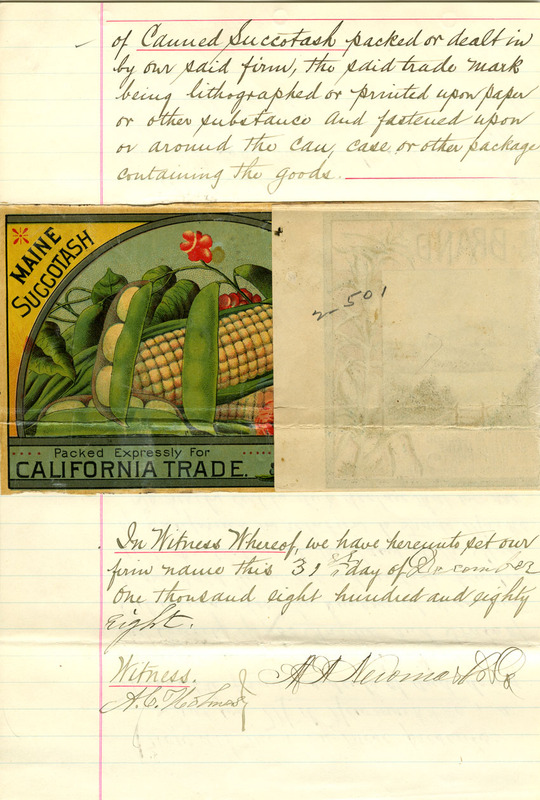 of Canned Succotash packed or dealt in
by our said firm, the said trade mark
being lithographed or printed upon paper
or other substance and fastened upon
or around the can, case or other package
containing the goods.
MAINE
SUCCOTASH
BRAND,
2-501
Packed Expressly For
CALIFORNIA TRADE. &
In Witness Whereof, we have hereunto set our
firm name this 31st day of December
One thousand eight hundred and eighty
Eight.
Witness.
A. C. Holmes